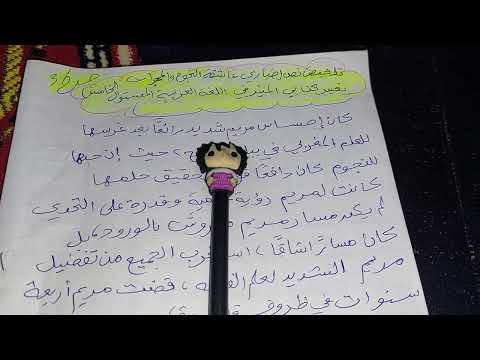 تلخيص نص إخباري عاشقة النجوم والمجرات ص
تعبير كتابي المنير في اللغة العربية المستوى الخامس
كان إحساس مريم شديد رائعًا بعد غرسها
للعلم المغربي في حيث إن حبها
للنجوم كان دافعًا تحقيق حلمها
كانت لمريم رؤية وقدرة على التحدي
لم يكن مسار مريم مفروش بالورود، بل
كان مسارًا شاقًا، استغرب الجميع من تفضيل
مريم الشديد لعلم الفلك، قضت مريم أربعة
سنوات في ظروف